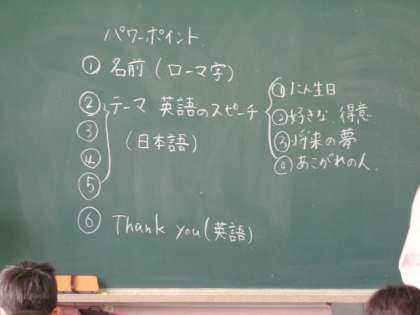 パワーポイント
① 名前(ローマ字)
② テーマ 英語のスピーチ
③
④ (日本語)
⑤
⑥ Thank you(英語)
① たん生日
② 好きな 得意
③ 将来の夢
④ あこがれの人